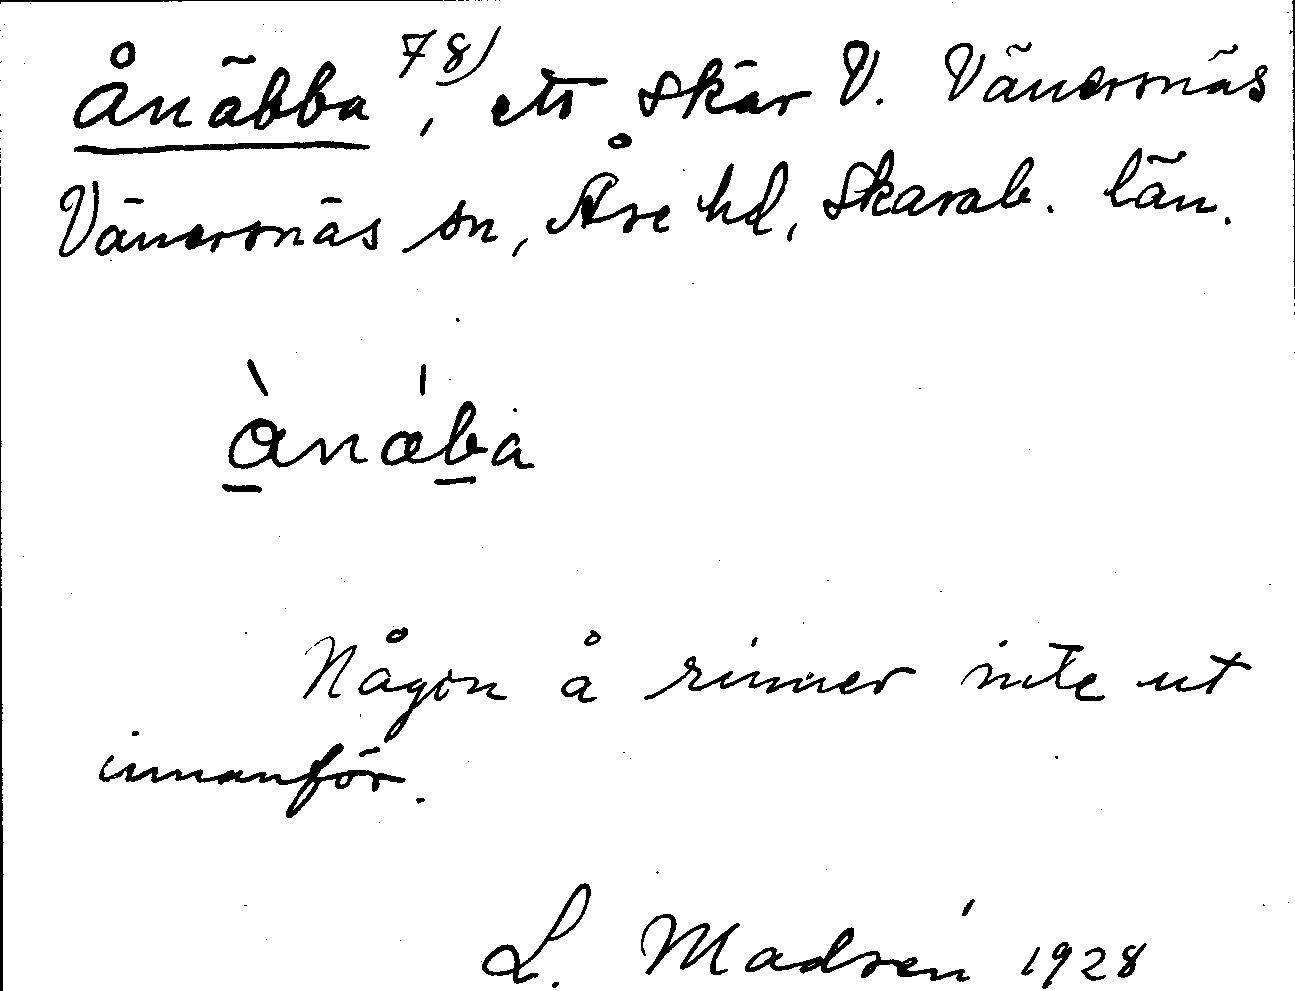 Ånäbba 78), ett skär V. Vänersnäs
Vänersnäs sn, Åse hd, Skarab. län.
ånæba
Någon å rinner inte ut
innanför.
L. Madsén 1928